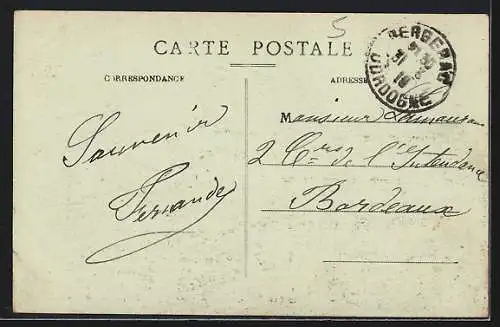 5
CARTE POSTALE
BERGERAC
DORDOGNE
CORRESPONDANCE
ADRESSE
Souvenir
Fernande
Monsieur
2 Crs de l'Intendance
Bordeaux